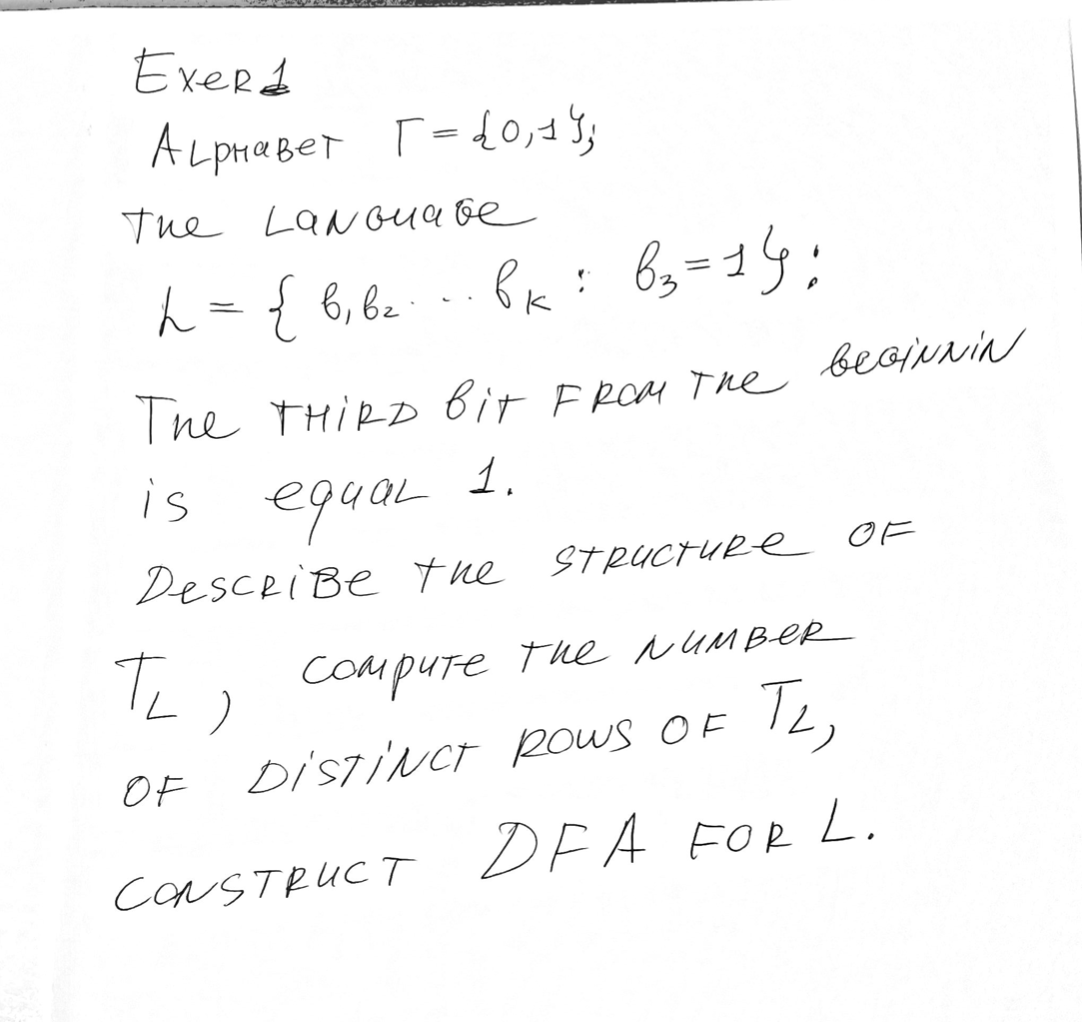 Exer 1
Alphabet Γ = {0,1};
The Language
L = { b₁b₂ ... bₖ : b₃ = 1 } :
The THIRD bit FROM The beginnin
is equal 1.
Describe the structure of
T_L, compute the number
of distinct rows of T_L,
construct DFA for L.